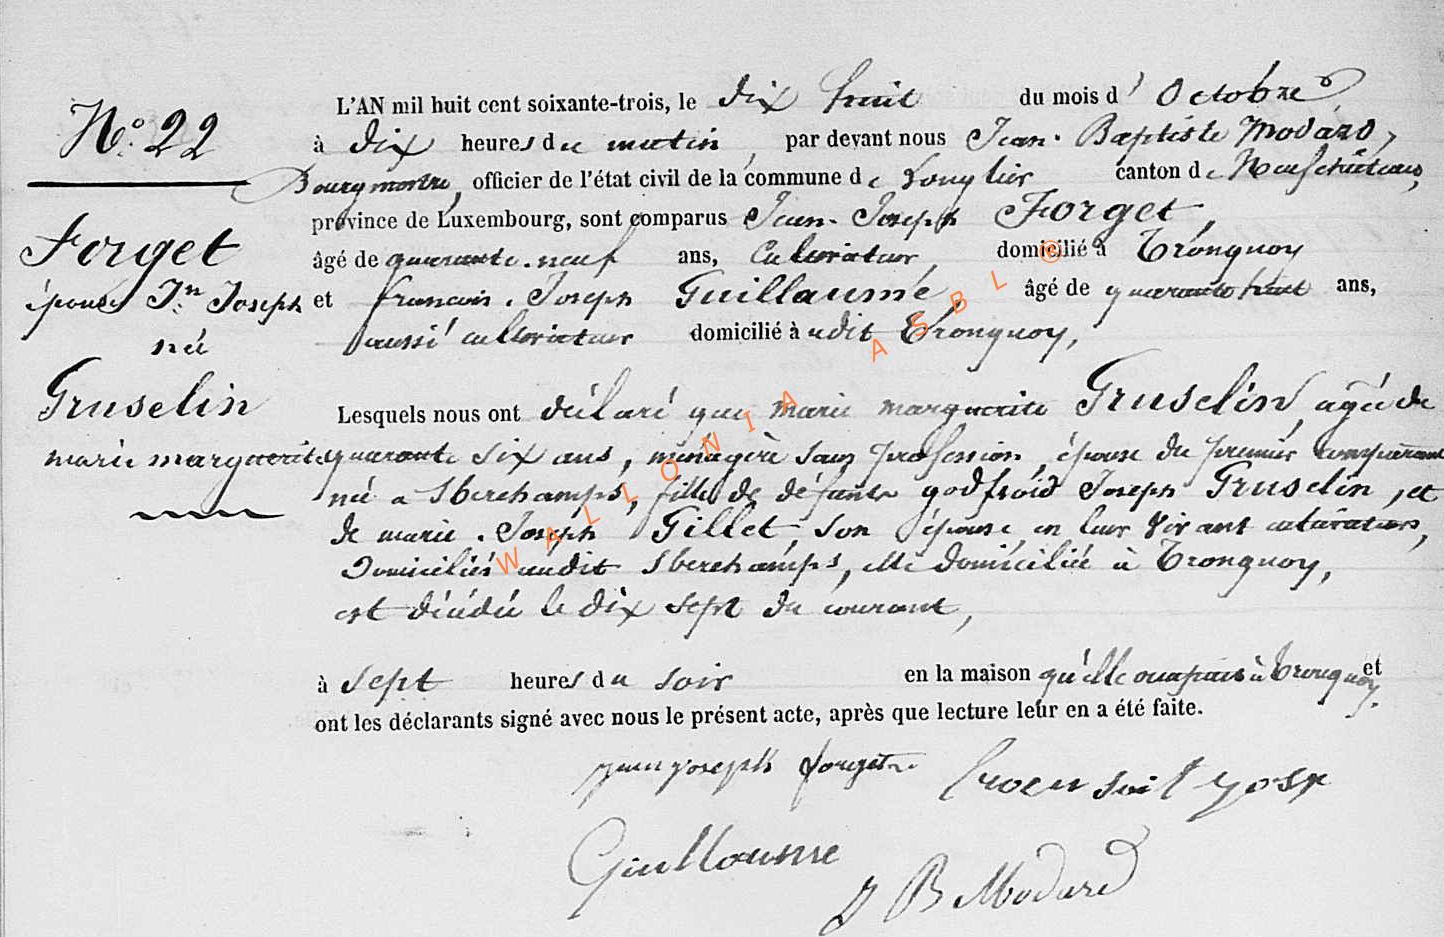 N° 22
Forget
épouse Jn Joseph
née
Gruselin
marie marguerite
L'AN mil huit cent soixante-trois, le dix huit du mois d' Octobre
à dix heures du matin, par devant nous Jean-Baptiste Modard,
Bourgmestre, officier de l'état civil de la commune de Longlier canton de Neufchâteau,
province de Luxembourg, sont comparus Jean-Joseph Forget,
âgé de quarante-neuf ans, Cultivateur, domicilié à Tronquoy
et françois-Joseph Guillaume, âgé de quarante huit ans,
aussi cultivateur domicilié à udit Tronquoy,
Lesquels nous ont déclaré que marie marguerite Gruselin, agée de
quarante six ans, ménagère sans profession, épouse du premier comparant
née a Sberchamps, fille de défunts godfroid Joseph Gruselin, et
de marie-Joseph Gillet, son épouse, en leur vivant cultivateurs,
Domiciliés audit Sberchamps, elle domiciliée à Tronquoy,
est décédée le dix sept du courant,
à sept heures du soir en la maison qu'elle occupait à Tronquoy, et
ont les déclarants signé avec nous le présent acte, après que lecture leur en a été faite.
jean joseph forget
Guillaume
J B Modard
WALLONIA ASBL ©